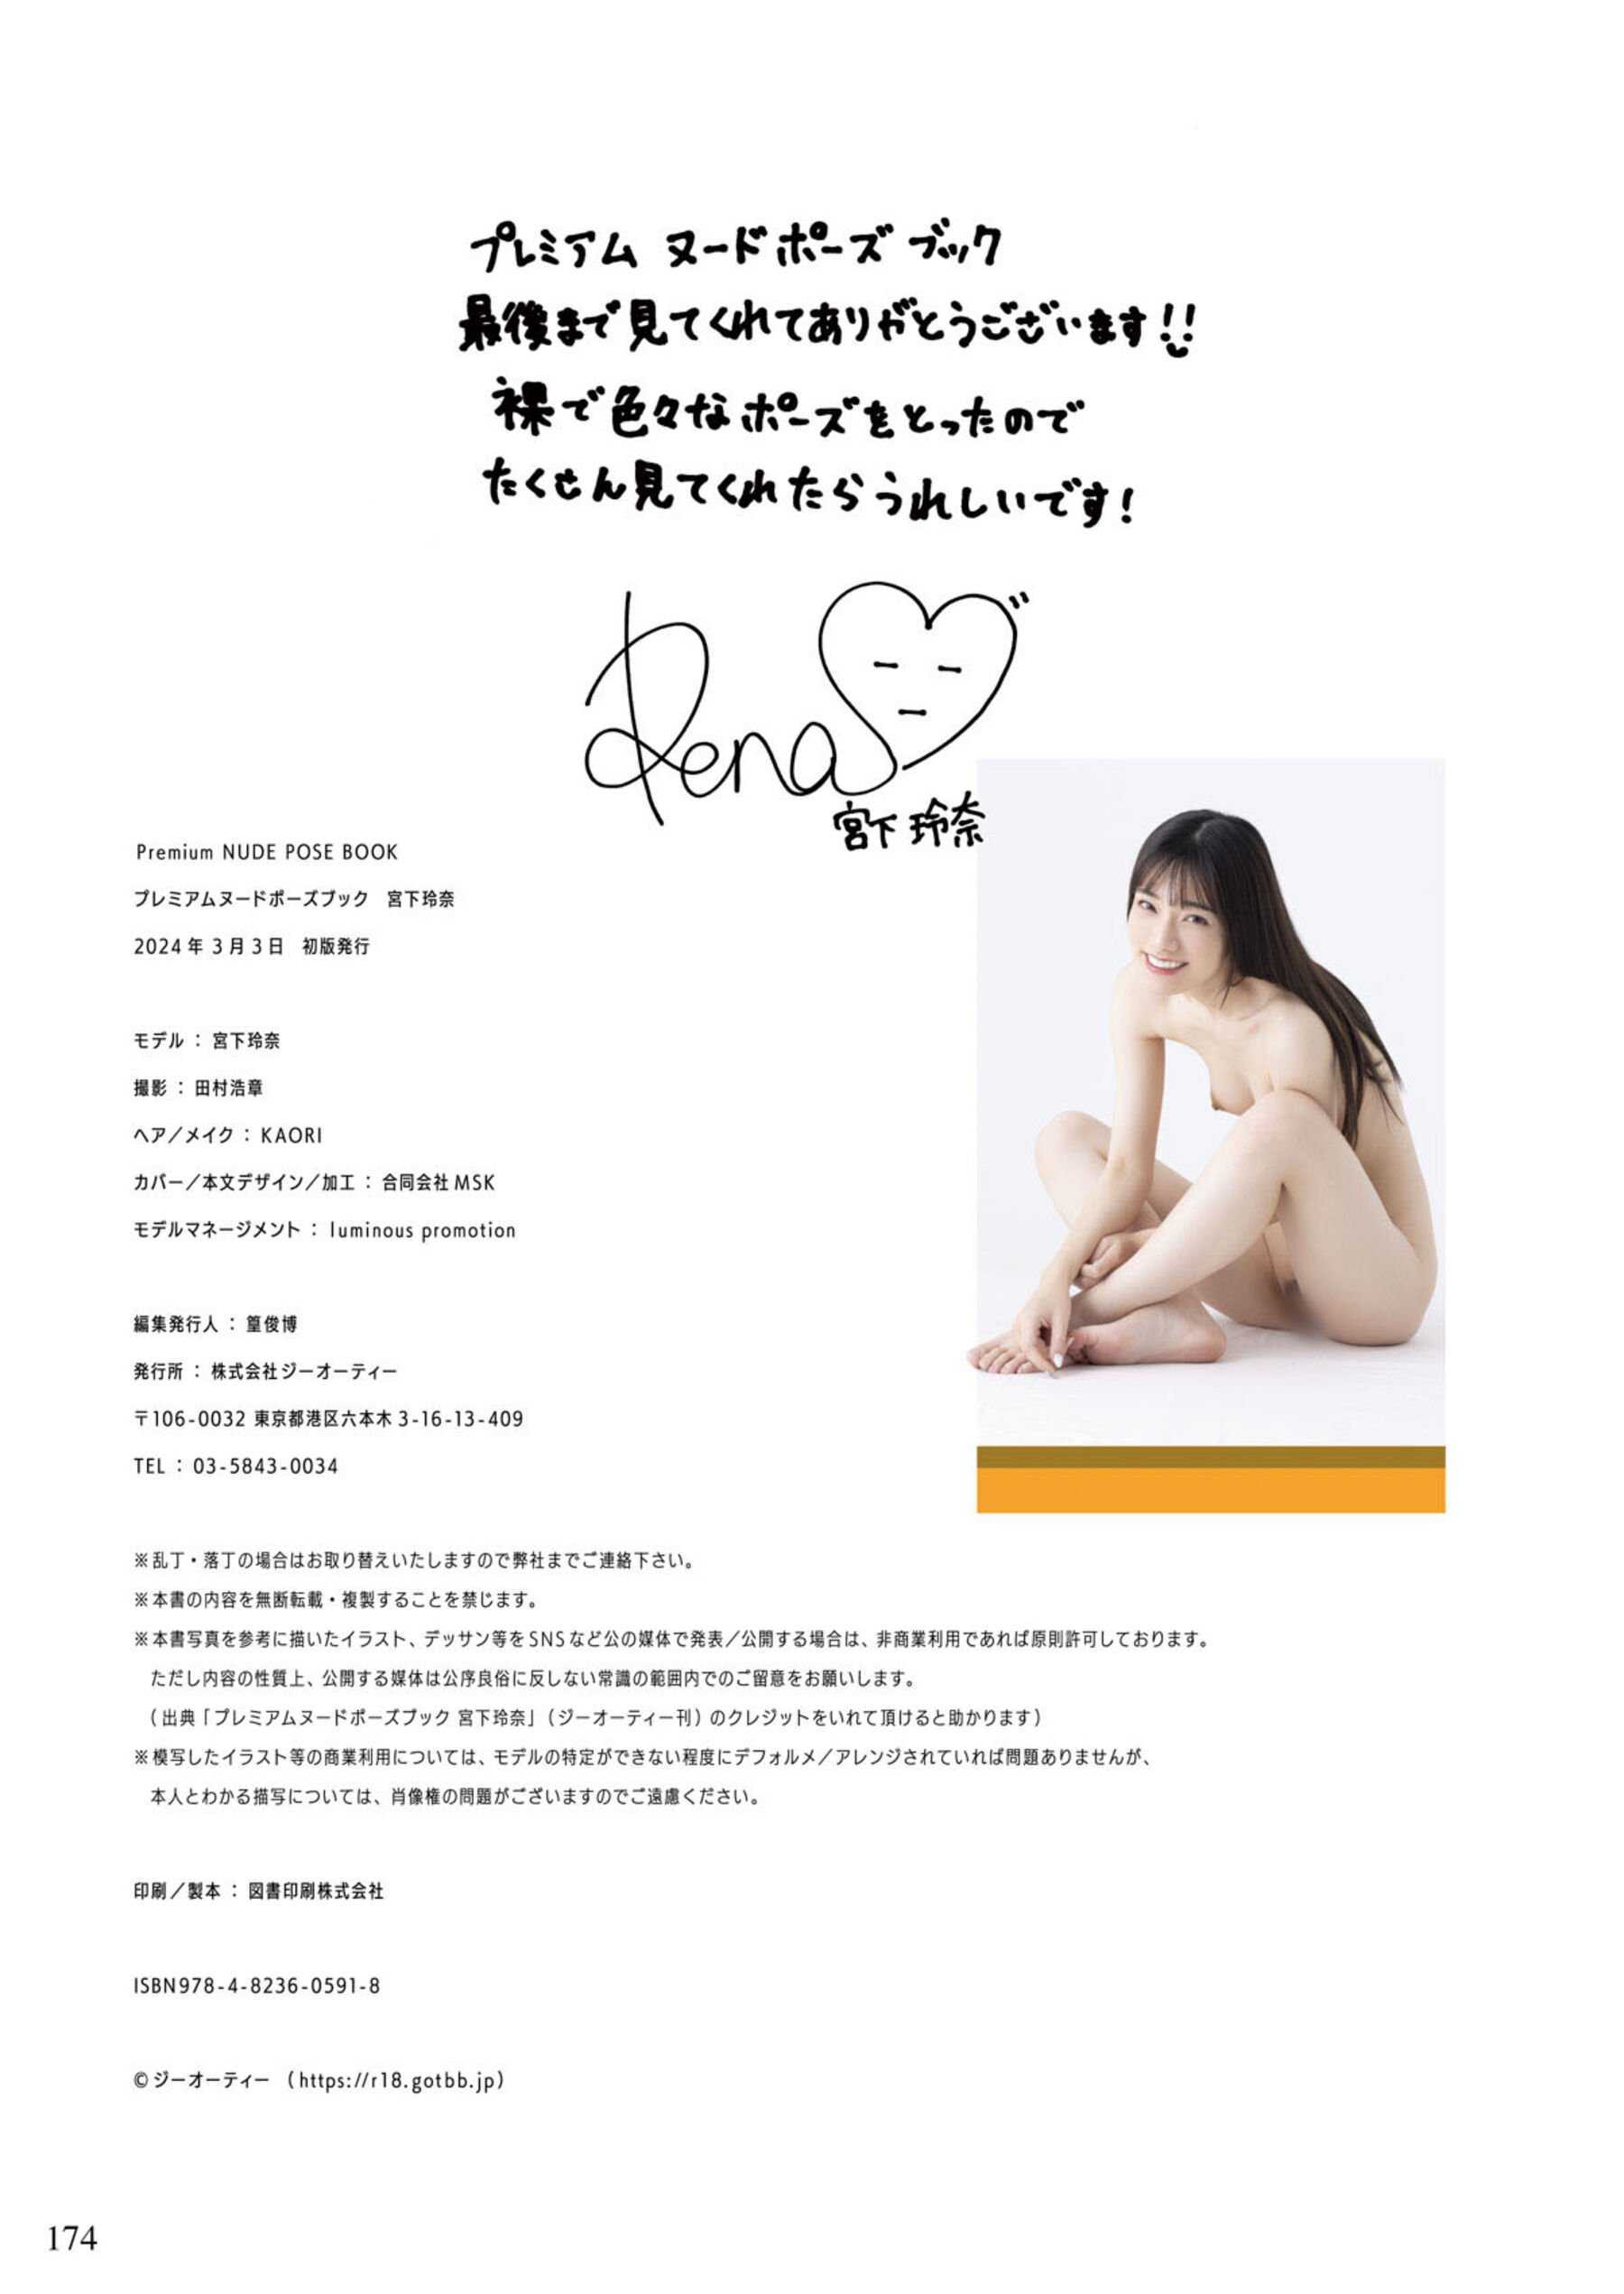 プレミアム ヌードポーズ ブック
最後まで見てくれてありがとうございます!!
裸で色々なポーズをとったので
たくさん見てくれたらうれしいです!
Rena
宮下玲奈
Premium NUDE POSE BOOK
プレミアムヌードポーズブック 宮下玲奈
2024年3月3日 初版発行
モデル:宮下玲奈
撮影:田村浩章
ヘア/メイク:KAORI
カバー/本文デザイン/加工:合同会社MSK
モデルマネージメント:luminous promotion
編集発行人:篁俊博
発行所:株式会社ジーオーティー
〒106-0032 東京都港区六本木3-16-13-409
TEL:03-5843-0034
※乱丁・落丁の場合はお取り替えいたしますので弊社までご連絡下さい。
※本書の内容を無断転載・複製することを禁じます。
※本書写真を参考に描いたイラスト、デッサン等をSNSなど公の媒体で発表/公開する場合は、非商業利用であれば原則許可しております。
ただし内容の性質上、公開する媒体は公序良俗に反しない常識の範囲内でのご留意をお願いします。
(出典「プレミアムヌードポーズブック 宮下玲奈」(ジーオーティー刊)のクレジットをいれて頂けると助かります)
※模写したイラスト等の商業利用については、モデルの特定ができない程度にデフォルメ/アレンジされていれば問題ありませんが、
本人とわかる描写については、肖像権の問題がございますのでご遠慮ください。
印刷/製本:図書印刷株式会社
ISBN978-4-8236-0591-8
©ジーオーティー (https://r18.gotbb.jp)
174